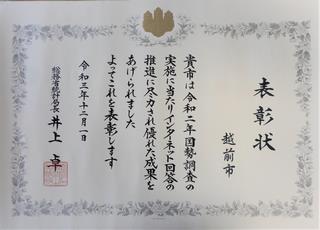 表彰状
越前市
貴市は令和二年国勢調査の
実施に当たりインターネット回答の
推進に尽力され優れた成果を
あげられました
よってこれを表彰します
令和三年十二月一日
総務省統計局長 井上 卓